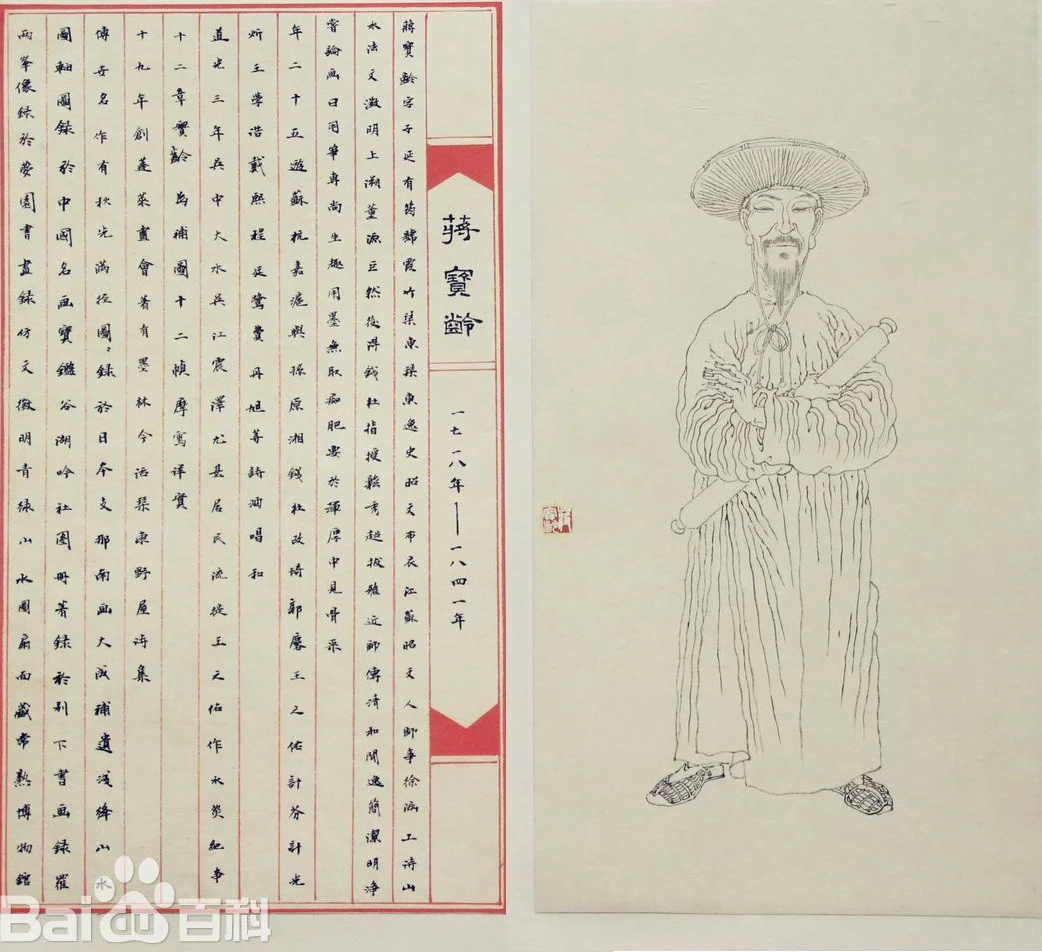 蔣寶齡
一七八一年——一八四一年
蔣寶齡字子延有筠號霞竹琴東琴東逸史昭文布衣江蘇昭文人師事徐涵工詩山
水法文徵明上溯董源巨然後得錢杜指授鬆秀超拔雖近師傳清和閒逸簡潔明淨
嘗論画曰用筆專尚生趣用墨無取痴肥要於渾厚中見骨采
年二十五遊蘇杭嘉滬與孫原湘錢杜改琦郭麐王之佑計芬計光
炘王學浩戴熙程庭鷺費丹旭等詩酒唱和
道光三年吳中大水吳江震澤尤甚居民流徙王之佑作水災紀事
十二章寶齡為補圖十二幀摩寫詳實
十九年創蓬萊畫會著有墨林今話琴東野屋詩集
傳世名作有秋光滿徑圖錄於日本支那南画大成補遺淺絳山水
圖軸圖錄於中國名画寶鑑谷湖吟社图冊著録於別下書画録羅
兩峯像録於夢園書畫録仿文徵明青绿山水圖扇面藏常熟博物館
Baidu百科